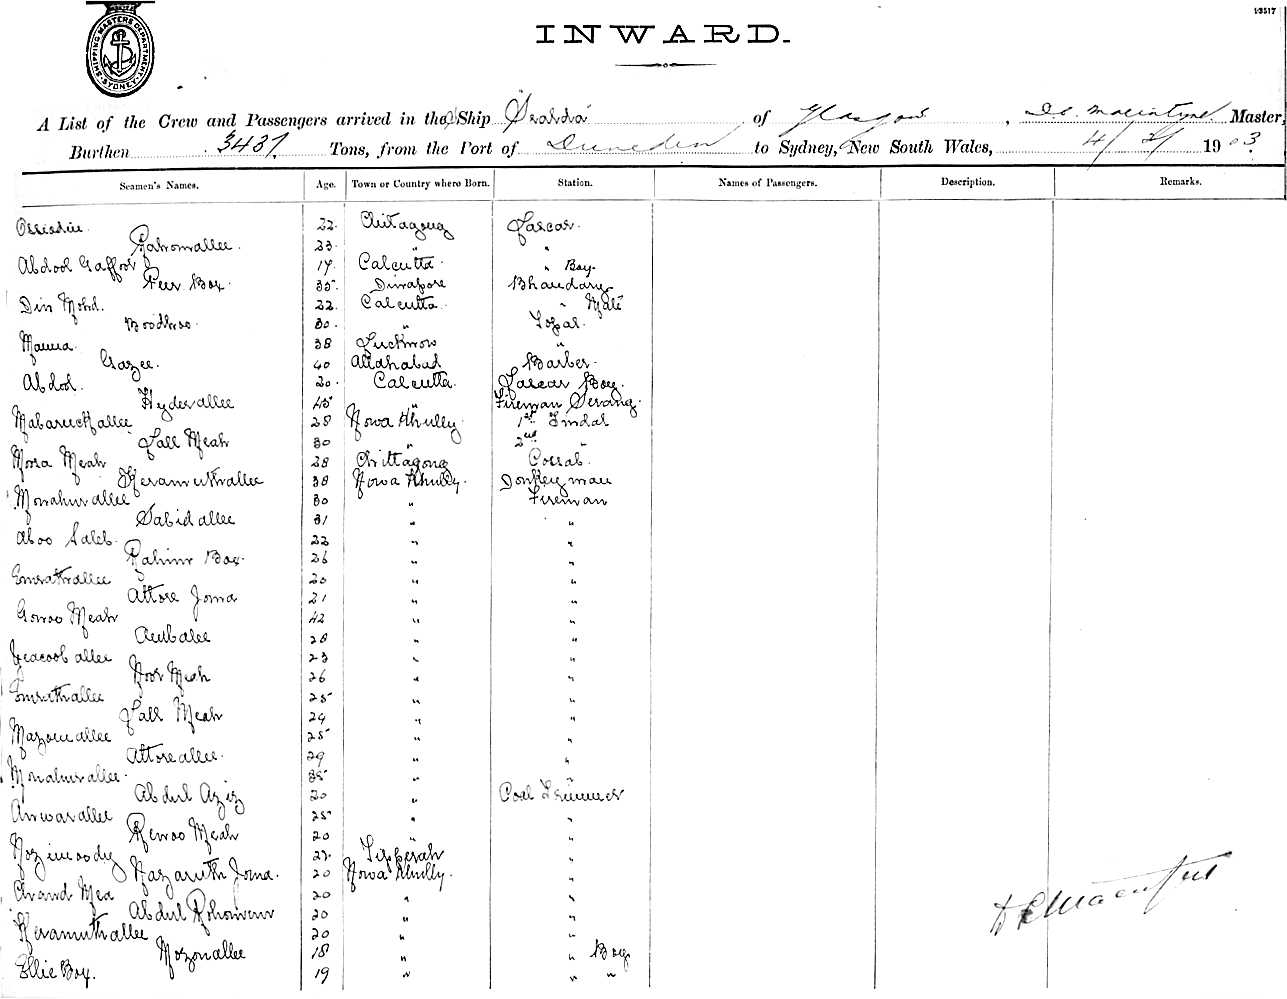 13517
SHIPPING MASTERS DEPARTMENT SYDNEY
INWARD.
A List of the Crew and Passengers arrived in the Ship of Glasgow, Master,
Burthen 3437 Tons, from the Port of Dunedin to Sydney, New South Wales, 4/ 1903
Seamen's Names. Age. Town or Country where Born. Station. Names of Passengers. Description. Remarks.
22. Chittagong Lascar.
Rahomallee. 33. "
Abdool Gaffoor 17. Calcutta. " Boy.
Peer Box. 35. Dinapore Bhandary
Din Mohd. 22. Calcutta " Mate
Boodhoo. 30. " Topas.
38 Lucknow "
Gazee. 40 Allahabad Barber.
Abdool. 20. Calcutta. Lascar Boy.
Hyderallee 45 " Fireman Serang.
Mabaruckallee 28 Nowa Khulley 1st Tindal
Lall Meah 30 " 2nd "
Moosa Meah 28 Chittagong Cossab.
Keramuthallee 38 Nowa Khulley. Donkeyman
Monahurallee 30 " Fireman
Sabidallee 31 " "
Aboo Saleb. 22 " "
Rahim Box. 26 " "
Emrathallee 20 " "
Attore Joma 21 " "
Gonoo Meah 42 " "
28 " "
Yeacoob allee 23 " "
Noor Meah 26 " "
Emrathallee 25 " "
Lall Meah 24 " "
25 " "
Attoreallee. 29 " "
Monahurallee. 35 " "
Abdul Aziz 20 " Coal Trimmer
Anwarallee 25 " "
Renoo Meah 20 " "
Nozimoody 22. Tipperah "
Nazaruth Joma. 20 Nowa Khulley. "
20 " "
Abdul 20 " "
Keramuthallee 20 " "
Mozonallee 18 " " Boy
Ellie Box. 19 " " "